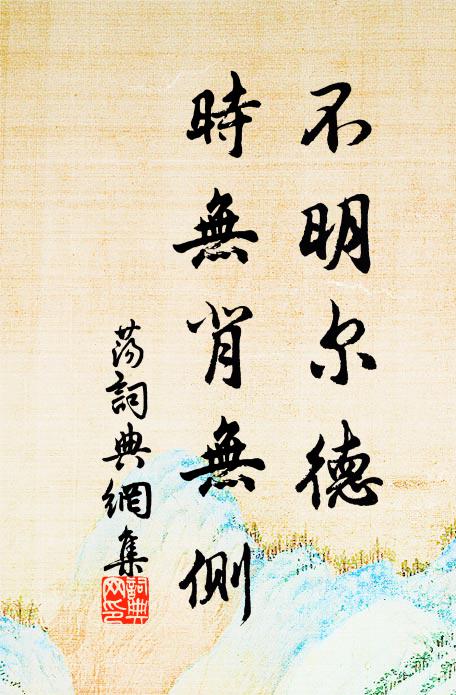 不明尔德
時無背無側
荡詞典網集
詞典网印